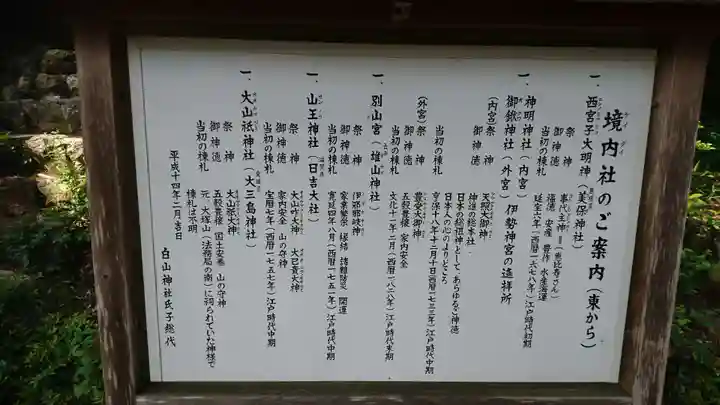 境内社のご案内（東から）
一．西宮子大明神（美保神社）
祭神　事代主神＝恵比寿さん
御神徳　福徳　安産　豊作　水産海運
当初の棟札　延宝六年（西暦一六七八年）江戸時代初期
一．神明神社（内宮）
御鍬神社（外宮）　伊勢神宮の遙拝所
（内宮）祭神　天照大御神
御神徳　神道の総本社
日本の総祖神として、あらゆるご神徳
日本人の心のよりどころ
当初の棟札　享保十八年十二月十日（西暦一七三三年）江戸時代中期
（外宮）祭神　豊受大御神
御神徳　五穀豊穣　家内安全
当初の棟札　文化十二年二月（西暦一八一六年）江戸時代末期
一．別山宮（雄山神社）
祭神　伊邪那岐神
御神徳　家業繁栄　縁結　諸難防災　開運
当初の棟札　寛延四年八月（西暦一七五一年）江戸時代中期
一．山王神社（日吉大社）
祭神　大山咋大神　大己貴大神
御神徳　家内安全　山の守神
当初の棟札　宝暦七年（西暦一七五七年）江戸時代中期
一．大山祇神社（大三島神社）
祭神　大山祇大神
御神徳　五穀豊穣　国土安泰　山の守神
当初の棟札　元、大様山（法務局の南）に祠られていた神様で
棟札は不明
平成十四年二月吉日
白山神社氏子総代